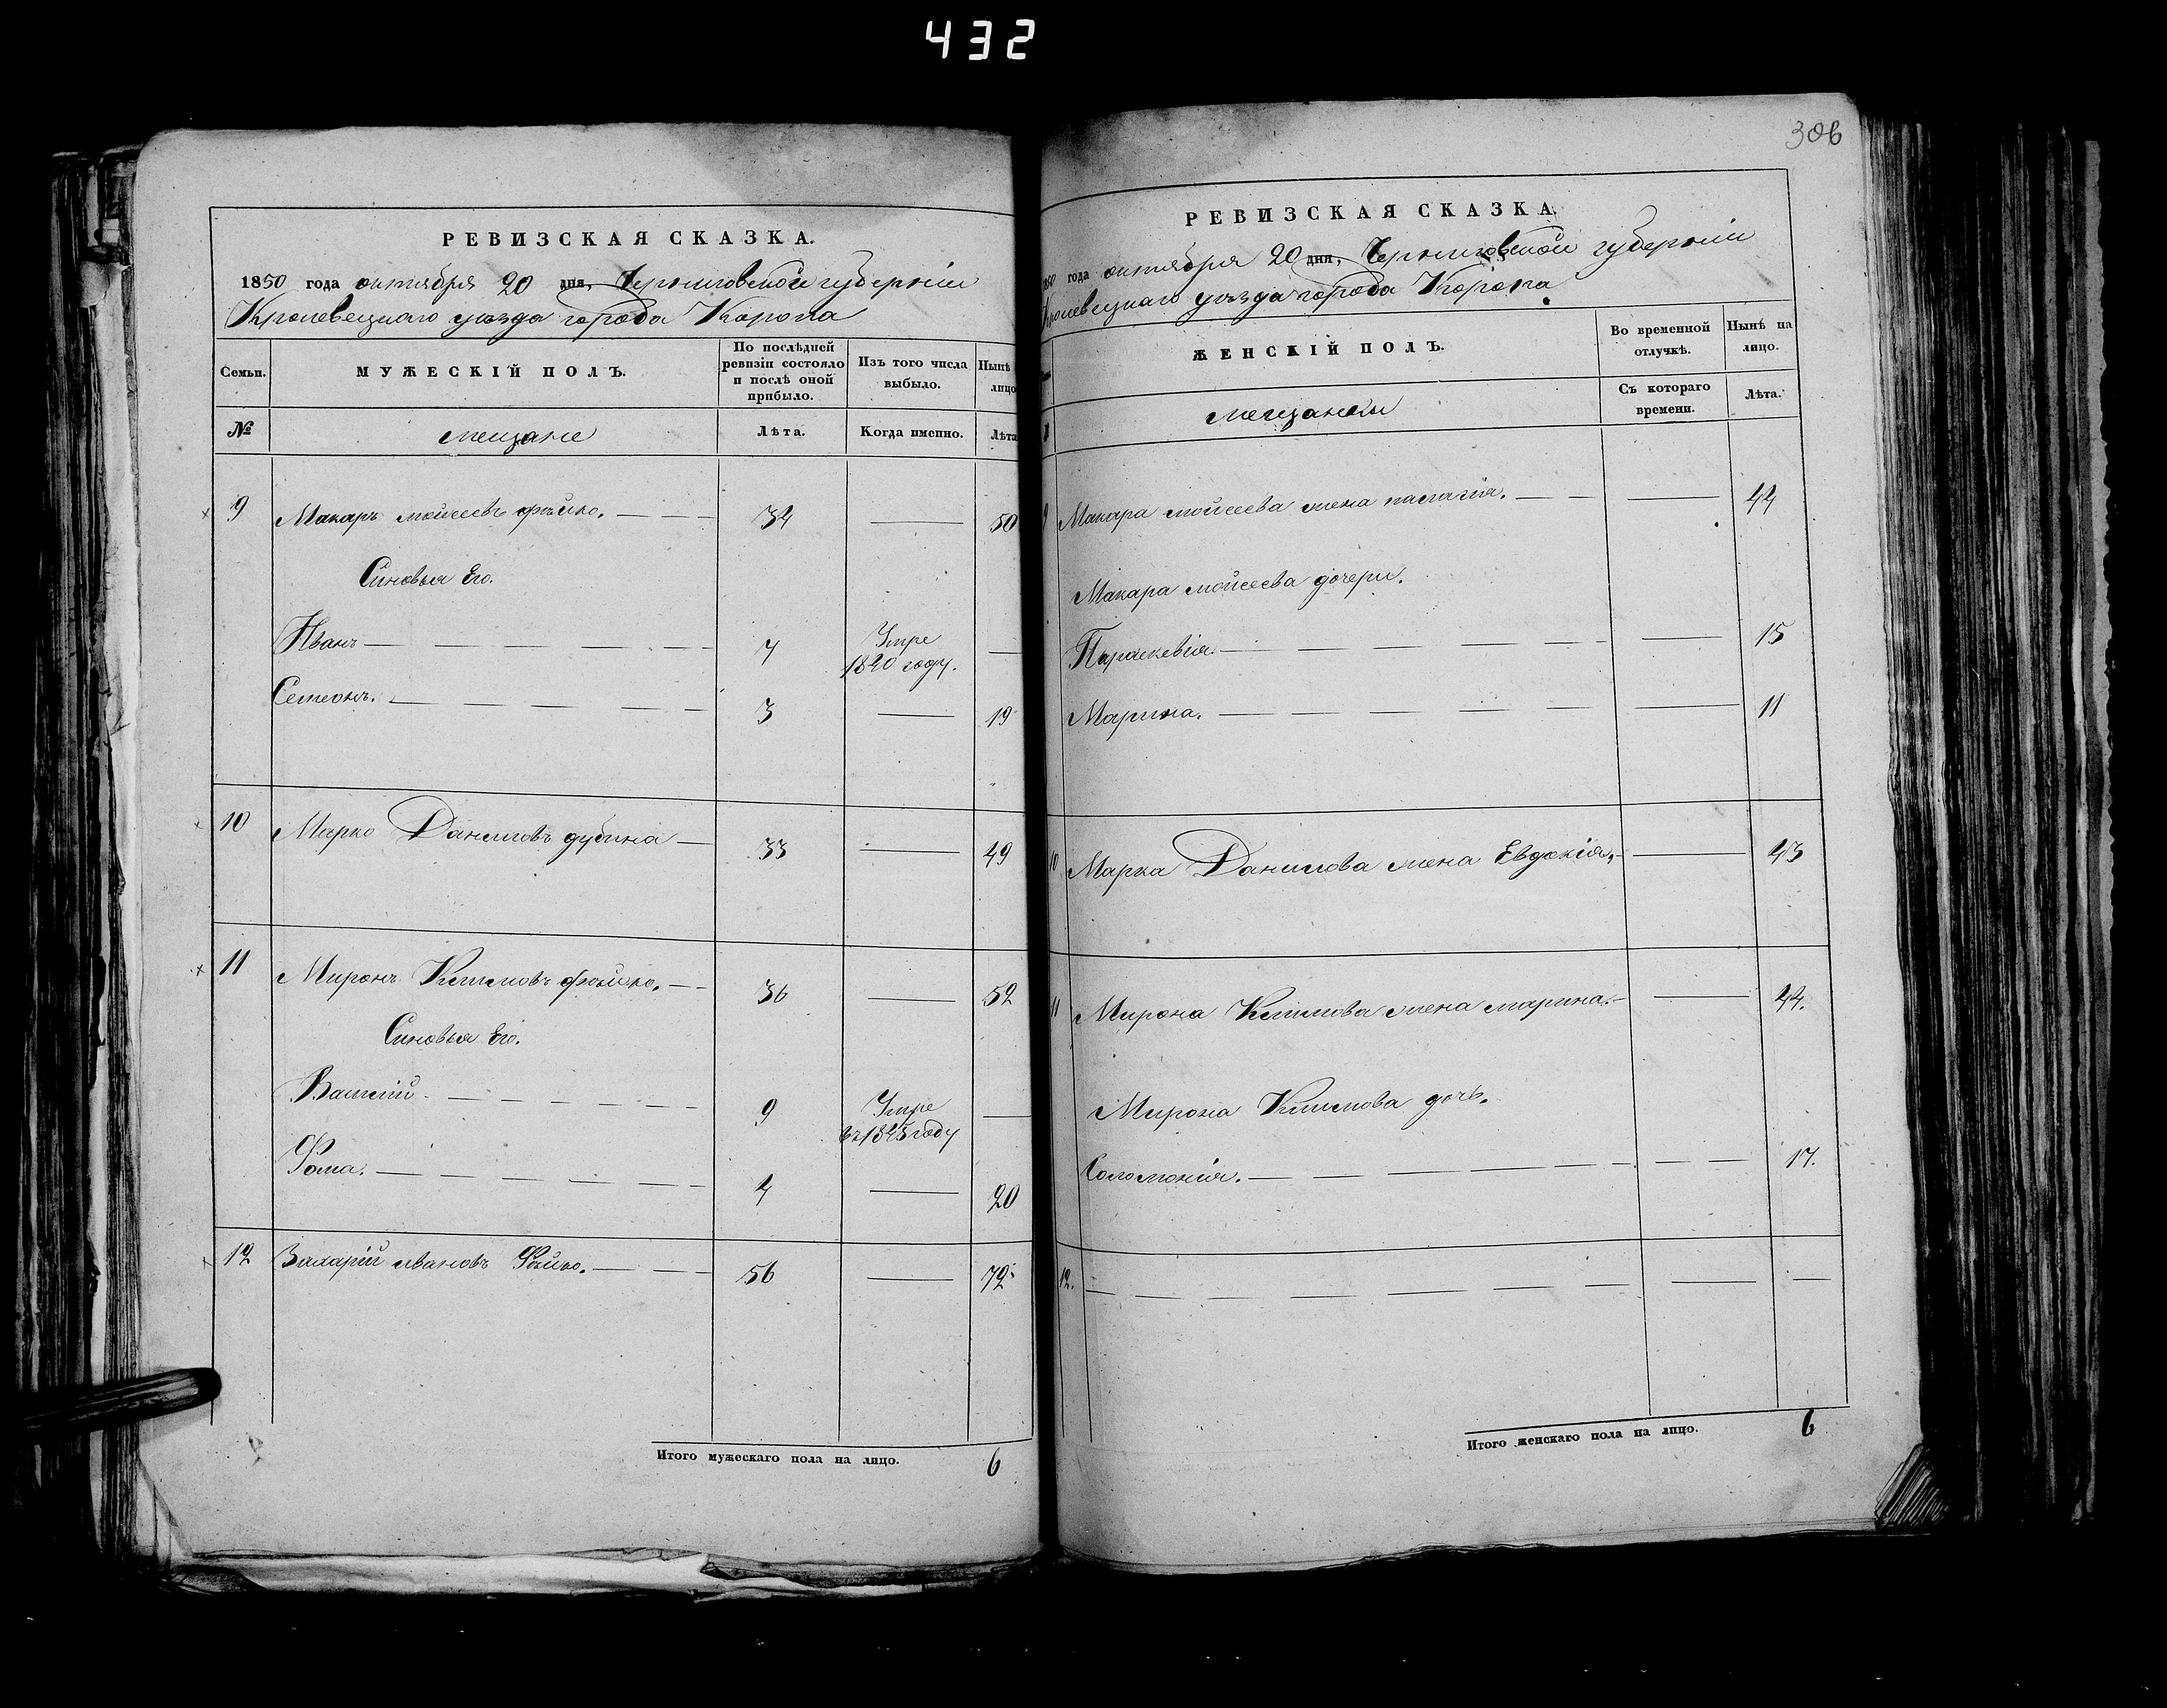 432
306
РЕВИЗСКАЯ СКАЗКА.
1850 года октября 20 дня, Черниговской губерніи
Кролевецкаго уѣзда города Коропа
Семьи.
МУЖЕСКІЙ ПОЛЪ.
По послѣдней ревизіи состояло и послѣ оной прибыло.
Изъ того числа выбыло.
Нынѣ
лицо
№
мещане
Лѣта.
Когда именно.
Лѣта
9 Макаръ моисеевъ 34 — 50
Синовья Его.
Иванъ 7 Умре —
году.
Семіонъ. 3 — 19
10 Марко Даниловъ дубина 33 — 49
11 Миронъ Климовъ 36 — 52
Синовья Его.
Василій 9 Умре —
году
Фома. 4 — 20
12 Захарій ивановъ 56 — 72
Итого мужескаго пола на лицо. 6
РЕВИЗСКАЯ СКАЗКА.
года октября 20 дня, Черниговской губерніи
Кролевецкаго уѣзда города Коропа
ЖЕНСКІЙ ПОЛЪ.
Во временной отлучкѣ.
Нынѣ на лицо.
мещанки
Съ котораго времени.
Лѣта.
9 Макара мойсеева жена — 44
Макара мойсеева дочери.
Параскевія — 15
Марина. — 11
10 Марка Данилова жена Евдокія. — 43
11 Мирона Климова жена марина. — 44.
Мирона Климова дочь.
Соломонія. — 17.
12. — — —
Итого женскаго пола на лицо. 6